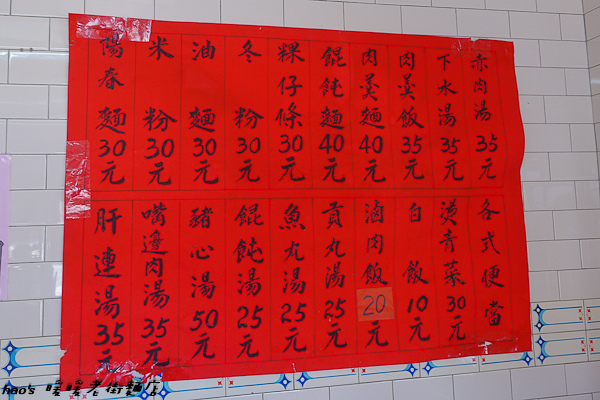 赤肉湯35元
下水湯35元
肉羹飯35元
肉羹麵40元
餛飩麵40元
粿仔條30元
冬粉30元
油麵30元
米粉30元
陽春麵30元
各式便當
燙青菜30元
白飯10元
滷肉飯20元
貢丸湯25元
魚丸湯25元
餛飩湯25元
豬心湯50元
嘴邊肉湯35元
肝連湯35元
hao's 暖暖老街麵店